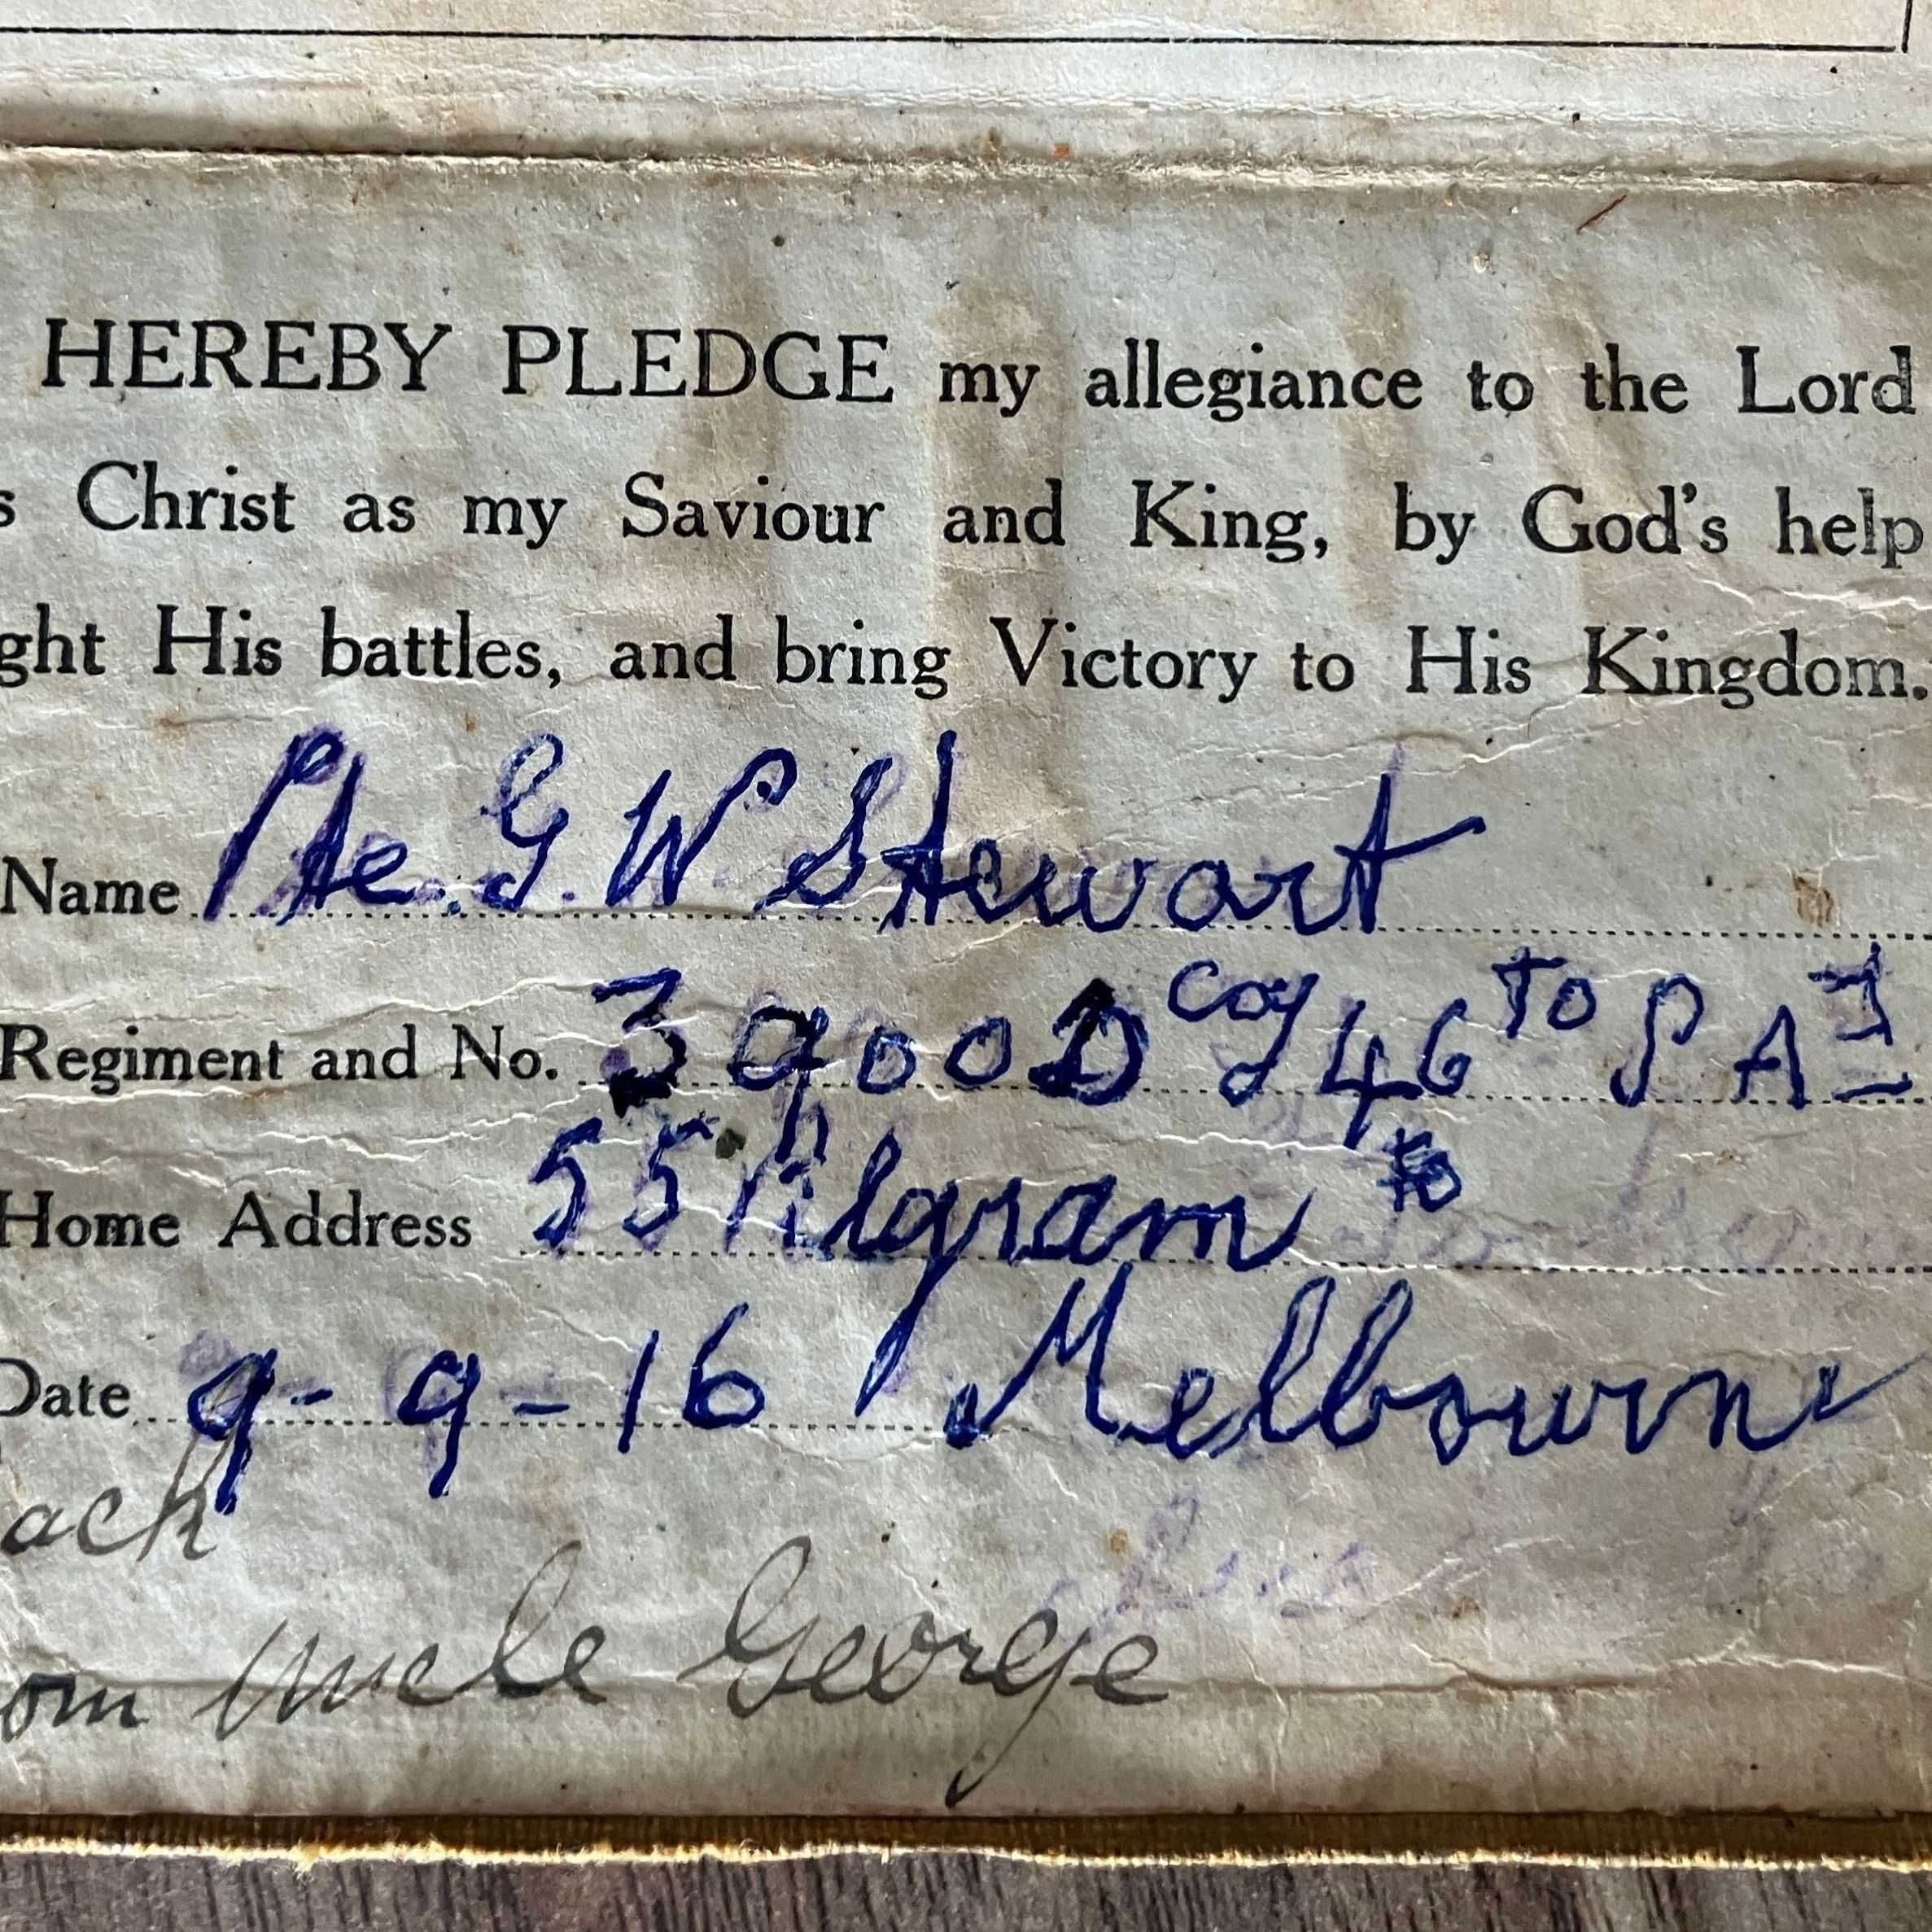 HEREBY PLEDGE my allegiance to the Lord
s Christ as my Saviour and King, by God's help
ght His battles, and bring Victory to His Kingdom.
Name Pte. G. W Stewart
Regiment and No. 3900 D Coy 46
Home Address 55 Pilgram
Date 9-9-16 Melbourne
ack
om Uncle George